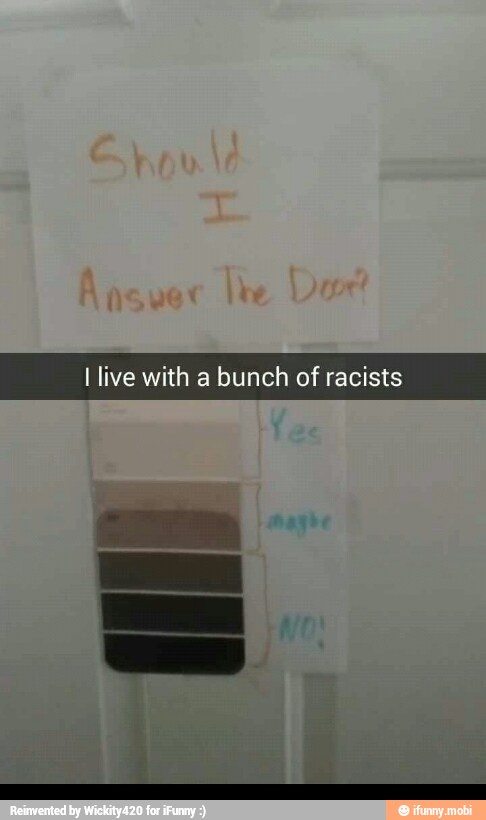 Should
I
Answer The Door?
I live with a bunch of racists
Yes
maybe
NO!
Reinvented by Wickity420 for iFunny :)
ifunny.mobi